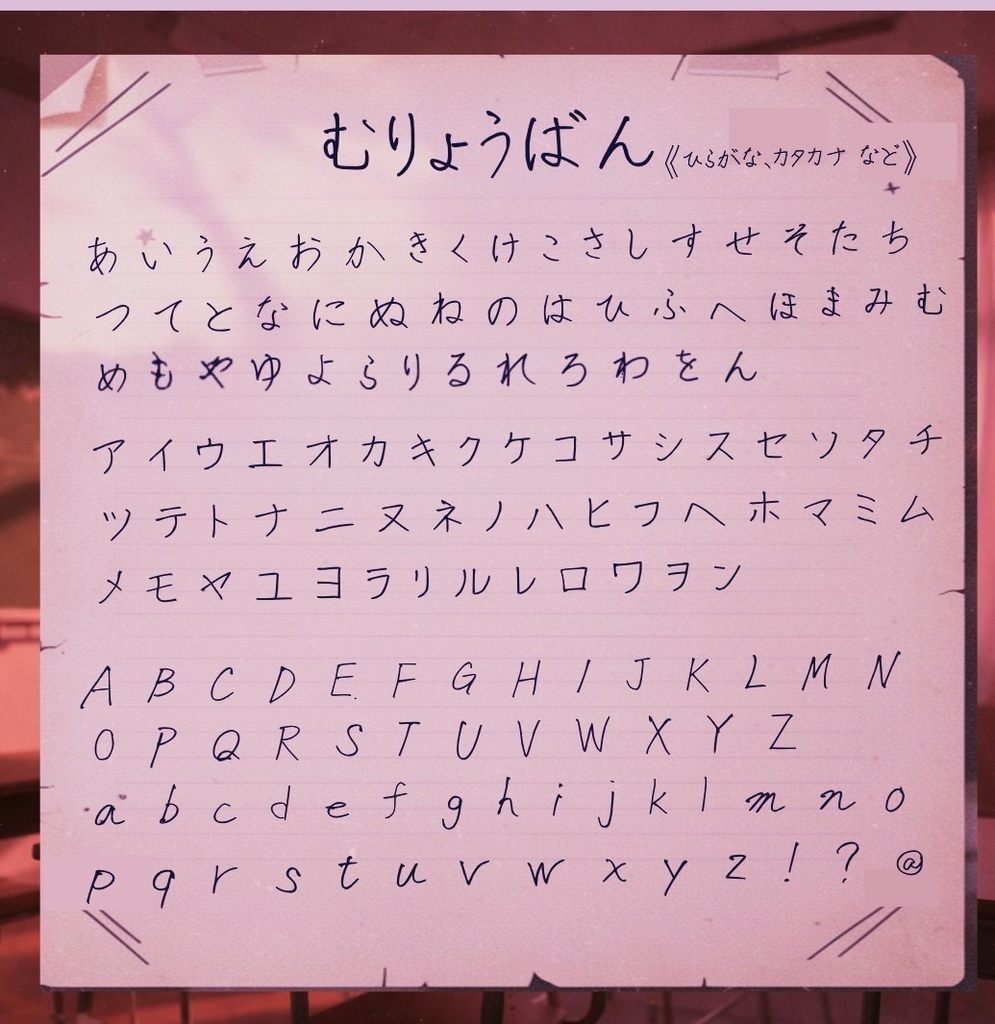 むりょうばん《ひらがな、カタカナ など》
あ い う え お か き く け こ さ し す せ そ た ち
つ て と な に ぬ ね の は ひ ふ へ ほ ま み む
め も や ゆ よ ら り る れ ろ わ を ん
ア イ ウ エ オ カ キ ク ケ コ サ シ ス セ ソ タ チ
ツ テ ト ナ ニ ヌ ネ ノ ハ ヒ フ ヘ ホ マ ミ ム
メ モ ヤ ユ ヨ ラ リ ル レ ロ ワ ヲ ン
A B C D E F G H I J K L M N
O P Q R S T U V W X Y Z
a b c d e f g h i j k l m n o
p q r s t u v w x y z ! ? @